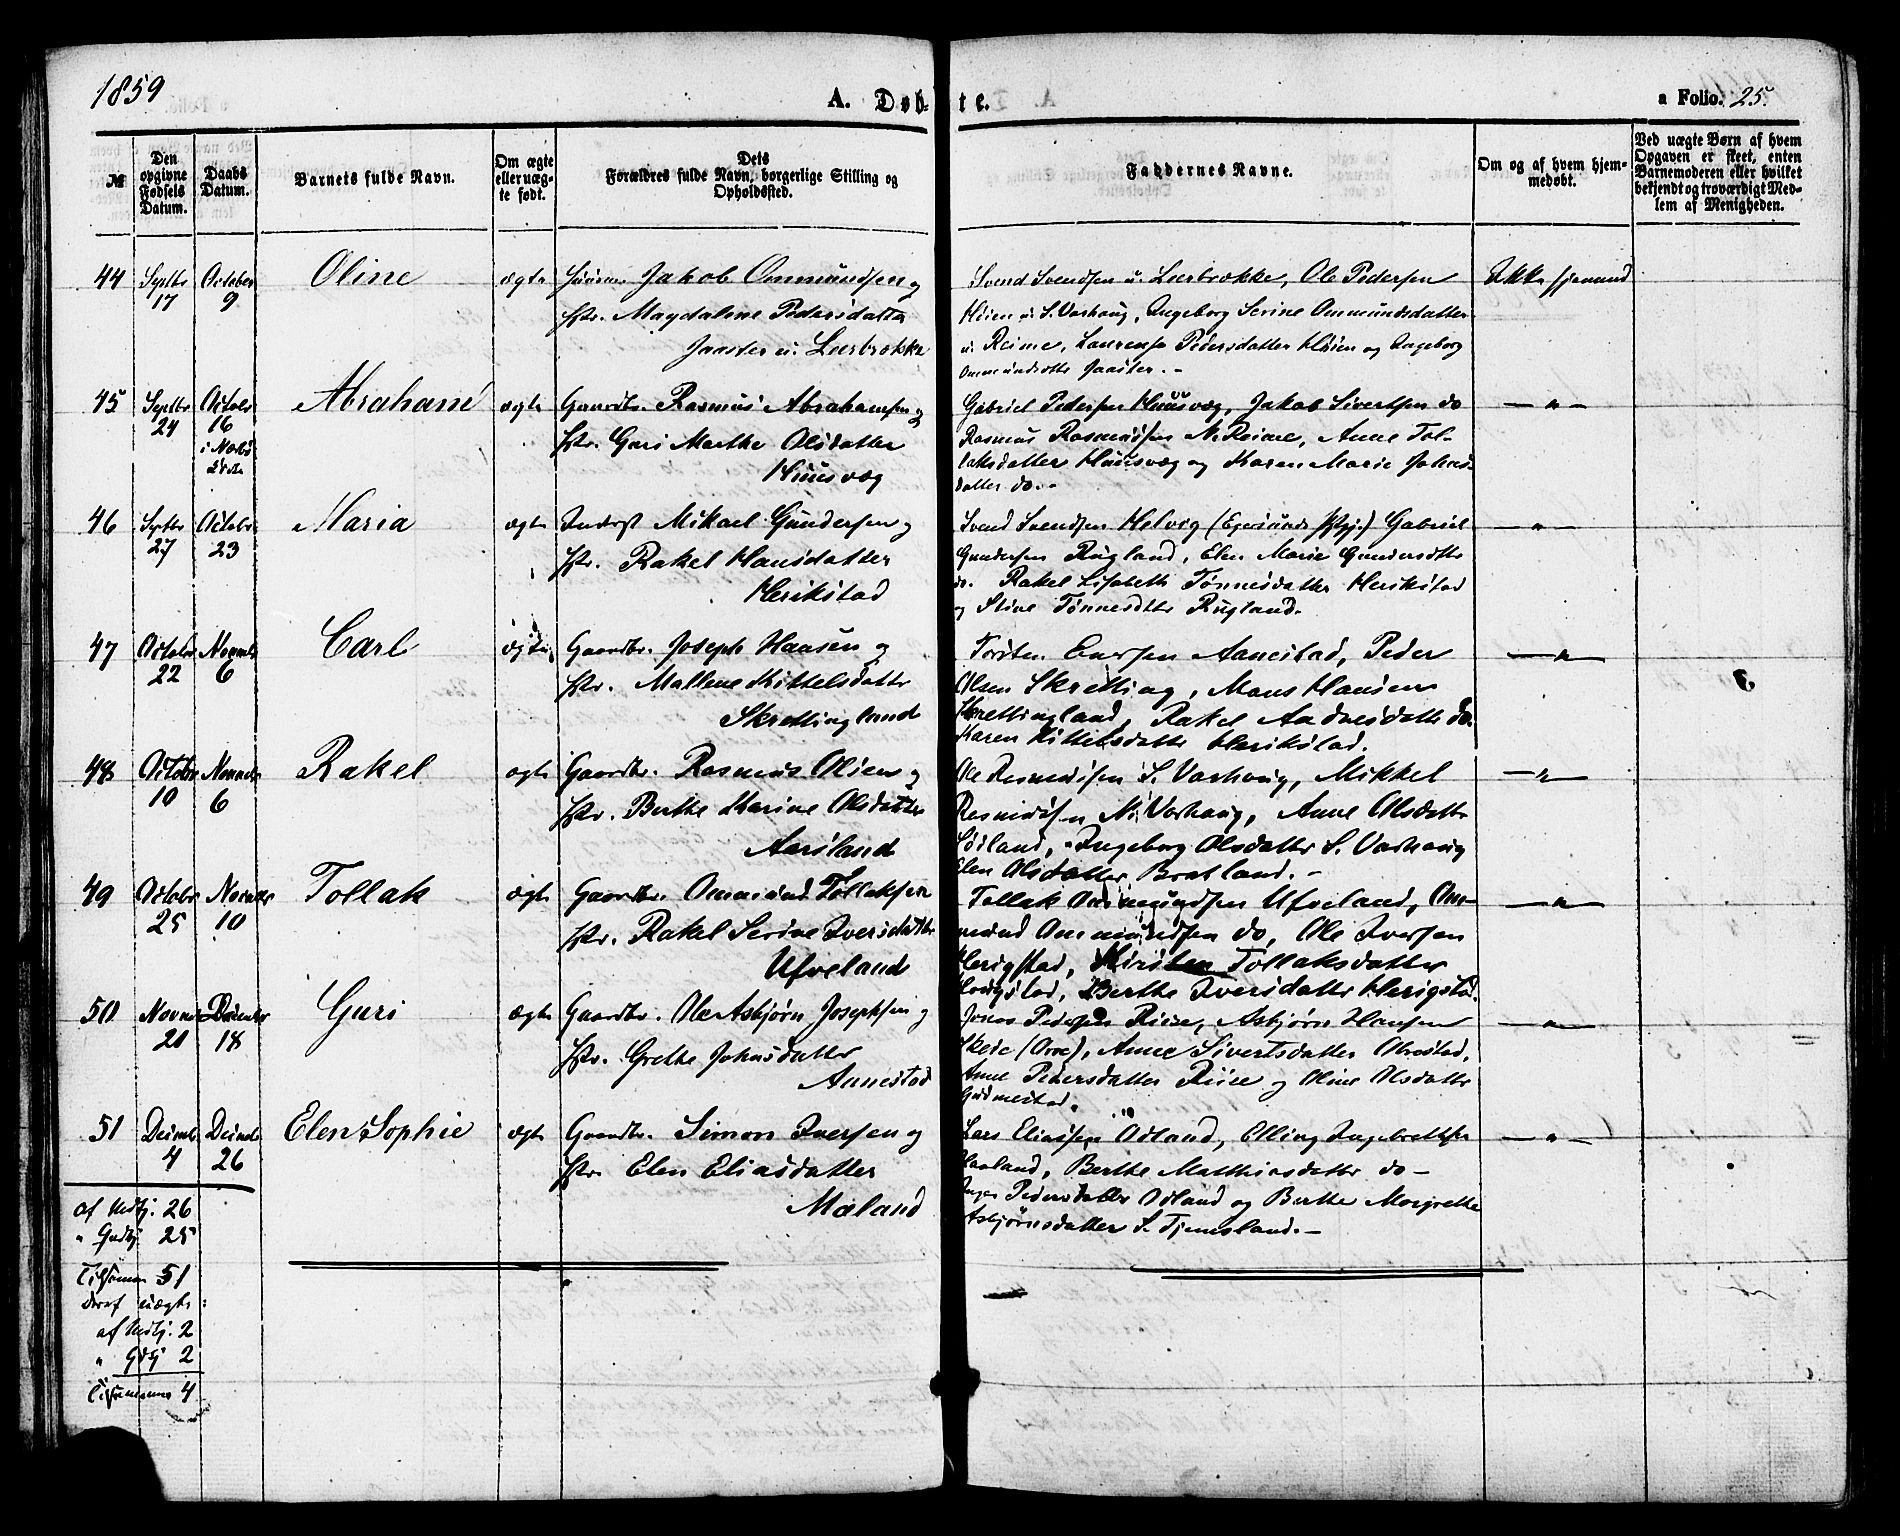 1859
A. Døb- te.
a Folio. 25.
№
Den opgivne Fødsels Datum.
Daabs Datum.
Barnets fulde Navn.
Om ægte eller uæg- te født.
Dets Forældres fulde Navn, borgerlige Stilling og Opholdssted.
Faddernes Navne.
Om og af hvem hjem- medøbt.
Ved uægte Børn af hvem Opgaven er skeet, enten Barnemoderen eller hvilket bekjendt og troværdigt Med- lem af Menigheden.
44 Septbr 17 October 9 Oline ægte Jakob Ommundsen og
Magdalene Pedersdatter
Jaaster u. Leerbrække
Svend Svendsen u. Leerbrække, Ole Pedersen
Høien u. S. Varhaug, Ingeborg Serine Ommundsdatter
u. Reime, Laurense Pedersdatter Høien og Ingeborg
Ommundsdtr Jaaster. -
Ikke hjemmed
45 Septbr 24 Octobr 16 Abraham ægte Gaardbr. Rasmus Abrahamsen og
Hstr. Guri Marthe Olsdatter
Huusvæg
Gabriel Pedersen Huusvæg, Jakob Sivertsen do
Rasmus Rasmussen N. Reime, Anne Tol-
laksdatter Huusvæg og Karen Marie Johns-
datter do. -
— " —
46 Septbr 27 Octobr 23 Maria ægte Inderst Mikael Gundersen og
Hstr. Rakel Hansdatter
Herikstad
Svend Svendsen Helvig (Egersunds Pstgj.) Gabriel
Gundersen Rugland, Elen Marie Gundersdttr
do. Rakel Lisabeth Tønnesdatter Herikstad
og Stine Tønnesdttr Rugland.
— " —
47 Octobr 22 Novmbr 6 Carl ægte Gaardbr. Joseph Hansen og
Hstr. Mallene Kittelsdattr
Skrettingland
Torsten Enersen Aanestad, Peder
Olsen Skretting, Mons Hansen
Skrettingland, Rakel Andersdattr do.
Karen Kittelsdattr Herikstad.
— " —
48 Octobr 10 Novmbr 6 Rakel ægte Gaardbr. Rasmus Olsen og
Hstr. Berthe Karine Olsdatter
Aarsland
Ole Rasmussen S. Varhaug, Mikkel
Rasmussen N. Varhaug, Anne Olsdattr
Sødland, Ingeborg Olsdatter S. Varhaug
Elen Olsdatter Bratland. -
— " —
49 Octobr 25 Novmbr 10 Tollak ægte Gaardbr. Ommund Tollaksen
Hstr. Rakel Serine Iversdattr
Ufveland
Tollak Ommundsen Ufveland, Om-
mund Ommundsen do, Ole Iversen
Herigstad, Kirsten Tollaksdatter
Berthe Iversdatter Herigstad.
— " —
50 Novmbr 21 Decmber 18 Guri ægte Gaardbr. Ole Asbjørn Josephsen og
Hstr. Grethe Johnsdattr
Aanestad
Jonas Pedersen Riise, Asbjørn Hansen
Skeie (Orre), Anne Sivertsdatter Obrestad,
Anne Pedersdatter Riise og Oline Olsdattr
Gudmestad.
— " —
51 Decmb 4 Decmb 26 Elen Sophie ægte Gaardbr. Simon Iversen og
Hstr Elen Eliasdatter
Mæland
Lars Eliassen Ødland, Elling Ingebrethsen
Haaland, Berthe Matthiasdattr do —
Pedersdattr Ødland og Berthe Morgrethe
Asbjørnsdatter S. Tjemsland. —
— " —
af Mdkj. 26
" Qvdkj 25
Tilsammen 51
deraf uægte:
af Mdkj. 2
" Qdkj 2
Tilsammen 4